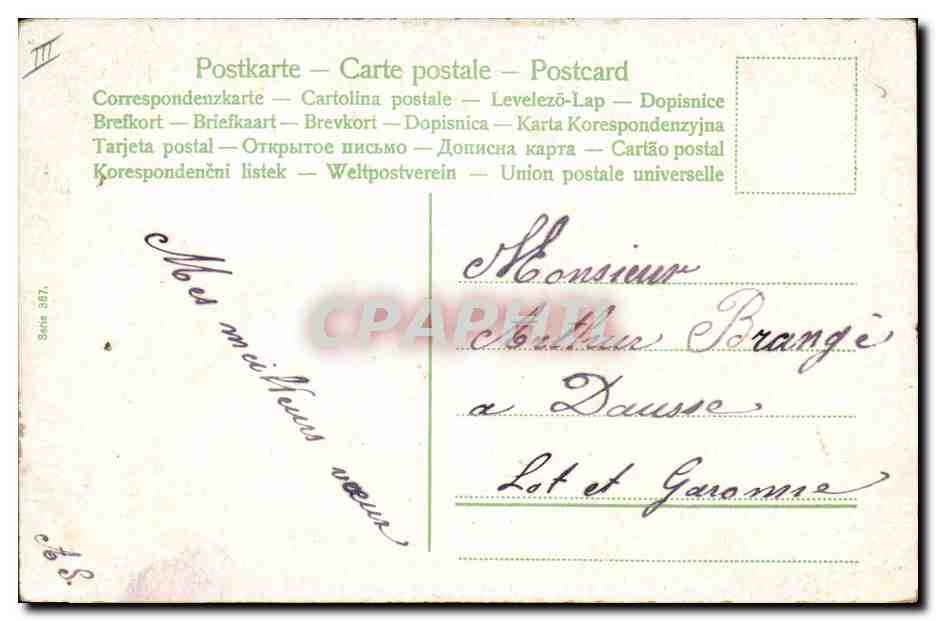 III
Postkarte — Carte postale — Postcard
Correspondenzkarte — Cartolina postale — Levelező-Lap — Dopisnice
Brefkort — Briefkaart — Brevkort — Dopisnica — Karta Korespondenzyjna
Tarjeta postal — Открытое письмо — Дописна карта — Cartão postal
Korespondenčni listek — Weltpostverein — Union postale universelle
Serie 367.
Mes meilleurs vœux
A S.
Monsieur
Arthur Brangé
a Dausse
Lot et Garonne
CPARHIL